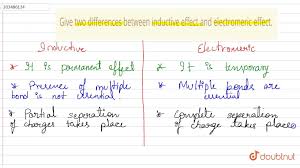 203486134
Give two differences between inductive effect and electromeric effect.
Inductive
Electromeric
* It is permanent effect
* It is temporary
* Presence of multiple
bond is not essential
* Multiple bonds are
essential
* Partial separation
of charges takes place
* Complete separation
of charge takes place
doubtnut